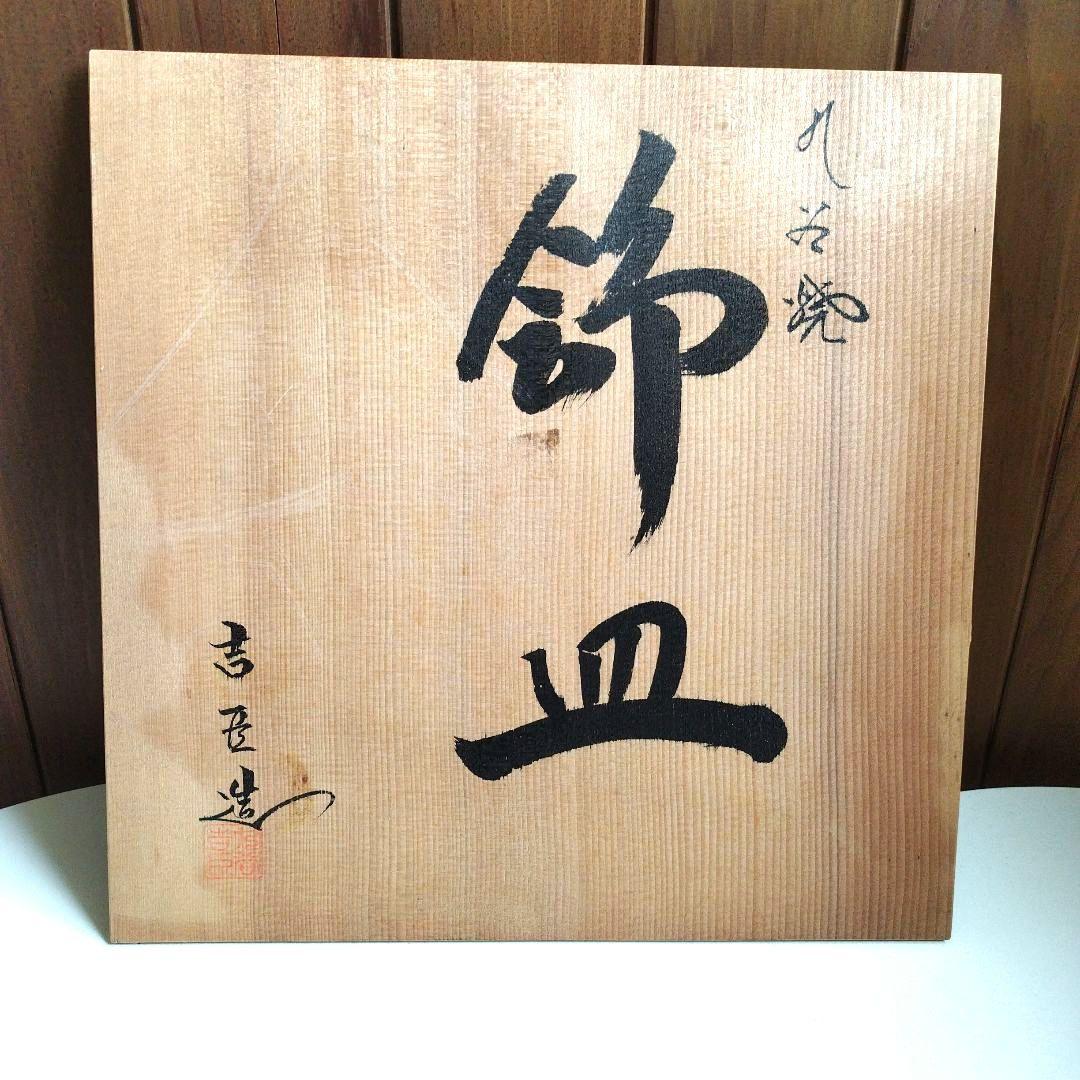 九谷焼
飾皿
吉臣造